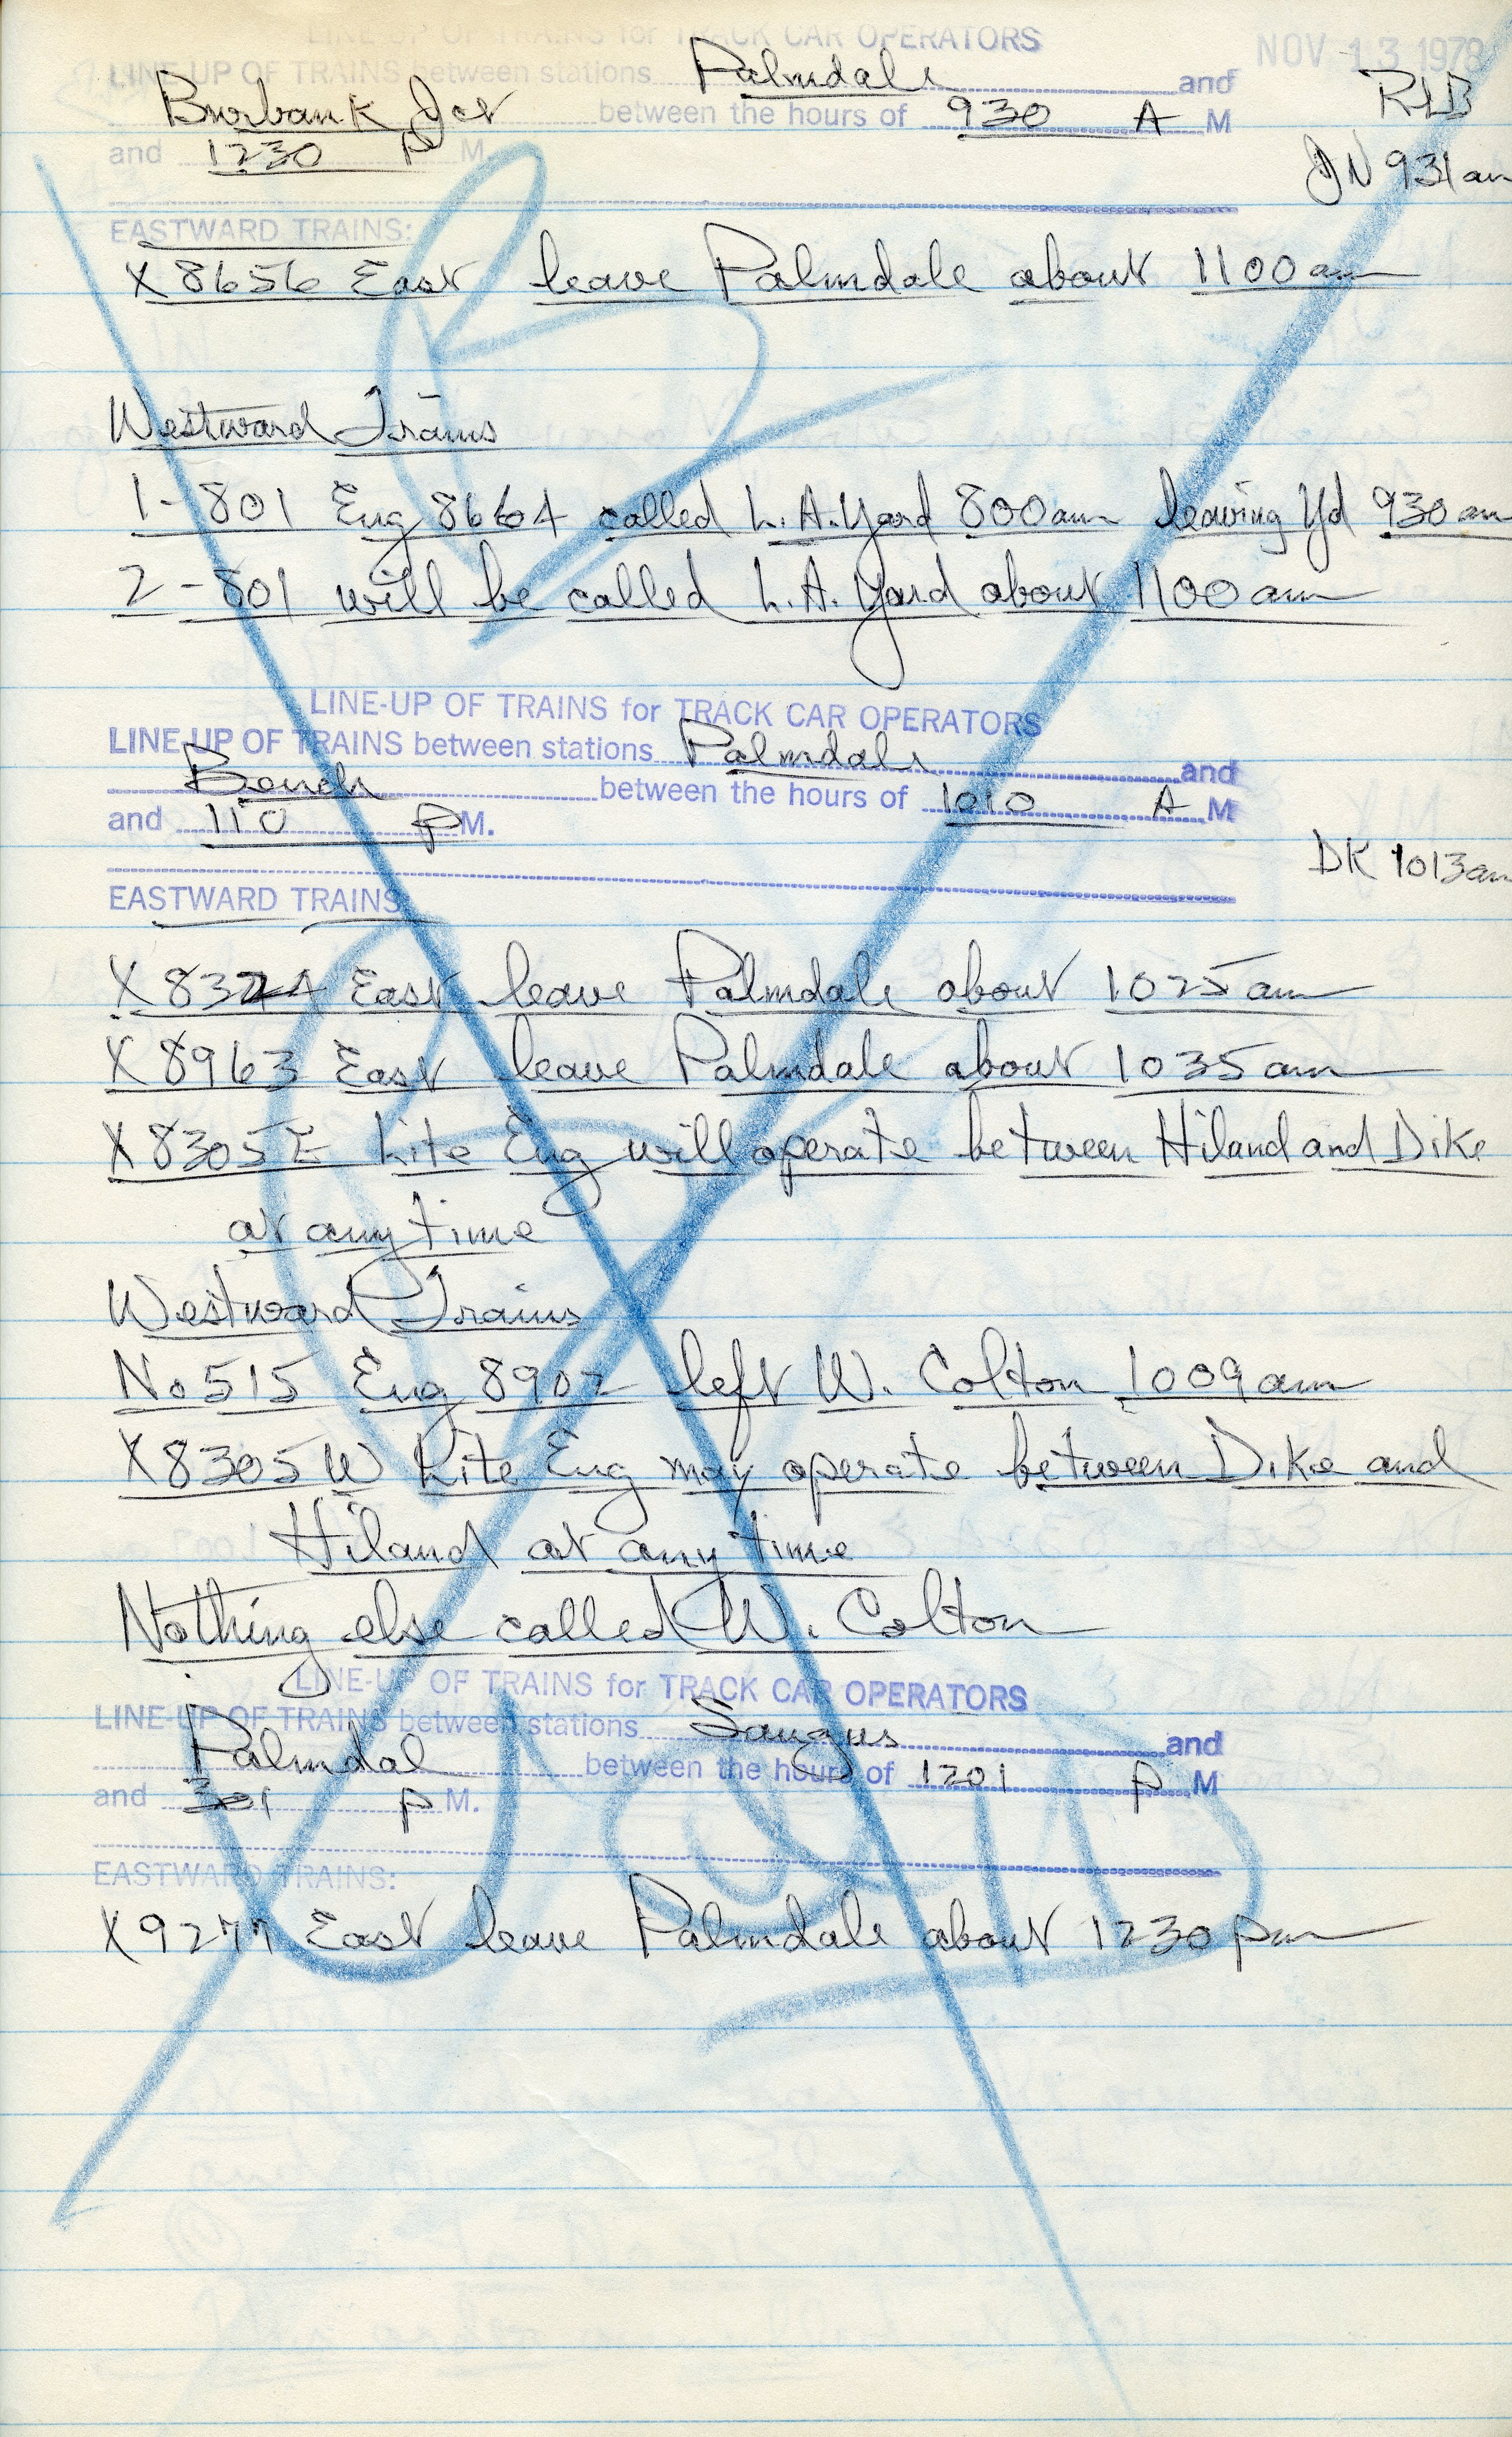 LINE-UP OF TRAINS for TRACK CAR OPERATORS
NOV 13 1978
LINE-UP OF TRAINS between stations Palmdale and
RLB
Burbank Jct between the hours of 930 A M
and 1230 P M.
JN 931 am
EASTWARD TRAINS:
X 8656 East leave Palmdale about 1100 am
Westward Trains
1-801 Eng 8664 called L.A. Yard 800 am leaving Yd 930 am
2-801 will be called L.A. Yard about 1100 am
LINE-UP OF TRAINS for TRACK CAR OPERATORS
LINE-UP OF TRAINS between stations Palmdale and
Bench between the hours of 1010 A M
and 110 P M.
DK 1013 am
EASTWARD TRAINS
X 8324 East leave Palmdale about 1025 am
X 8963 East leave Palmdale about 1035 am
X 8305 E Lite Eng will operate between Hiland and Dike
at any time
Westward Trains
No 515 Eng 8902 left W. Colton 1009 am
X 8305 W Lite Eng may operate between Dike and
Hiland at any time
Nothing else called W. Colton
LINE-UP OF TRAINS for TRACK CAR OPERATORS
LINE-UP OF TRAINS between stations Saugus and
Palmdal between the hours of 1201 P M
and 301 P M.
EASTWARD TRAINS:
X 9277 East leave Palmdale about 1230 pm